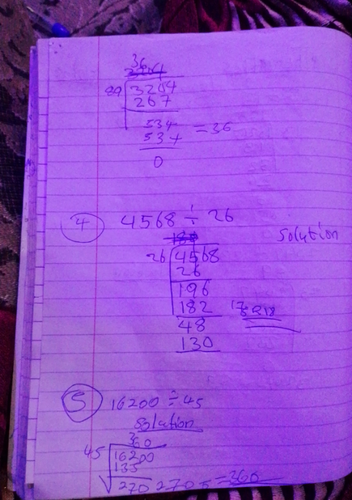 36
89 3204
267
534 = 36
534
0
4 4568 ÷ 26
Solution
26 4568
26
196
182
48
130
5 16200 ÷ 45
Solution
360
45 16200
135
270 270 = 360